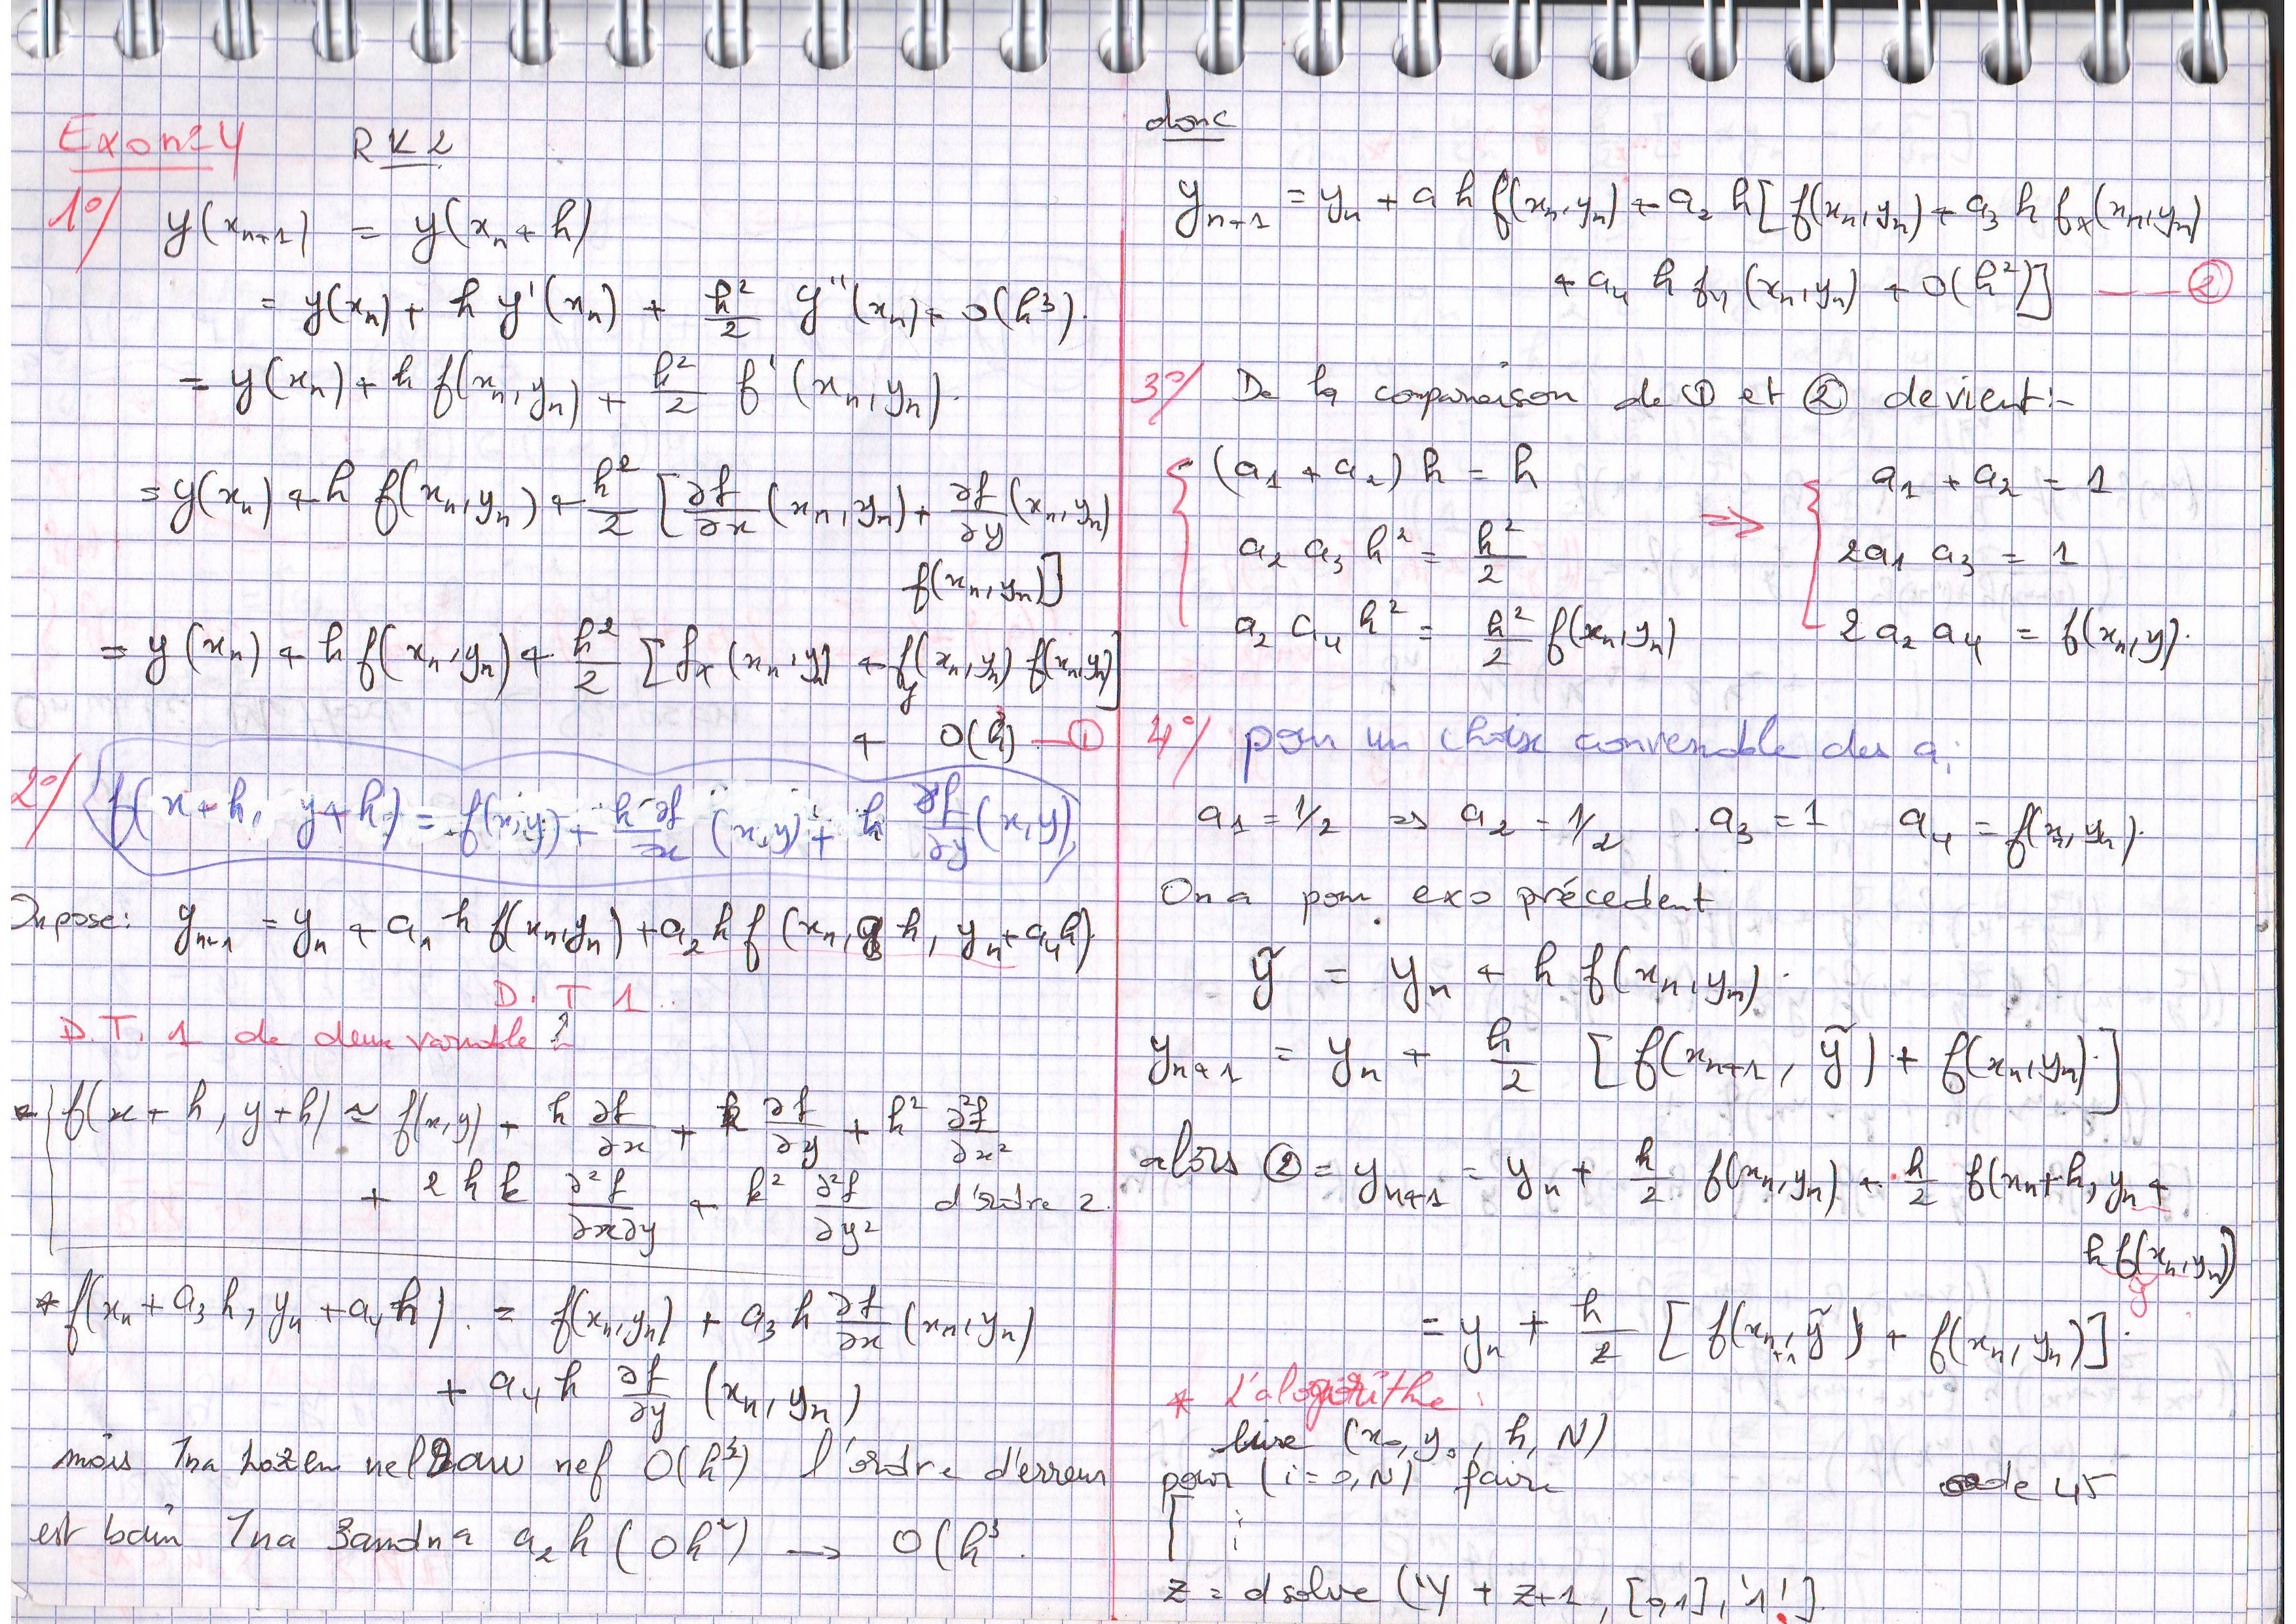 Exo n=4 RK2
1°/ y(x_{n+1}) = y(x_n + h)
= y(x_n) + h y'(x_n) + h²/2 y''(x_n) + O(h³).
= y(x_n) + h f(x_n, y_n) + h²/2 f'(x_n, y_n).
= y(x_n) + h f(x_n, y_n) + h²/2 [∂f/∂x (x_n, y_n) + ∂f/∂y (x_n, y_n)
f(x_n, y_n)]
= y(x_n) + h f(x_n, y_n) + h²/2 [f_x (x_n, y_n) + f_y (x_n, y_n) f(x_n, y_n)]
+ O(h³) — ①
2°/ f(x+h, y+h) = f(x,y) + h ∂f/∂x (x,y) + h ∂f/∂y (x,y)
On pose: y_{n+1} = y_n + a_1 h f(x_n, y_n) + a_2 h f(x_n, a_3 h, y_n + a_4 h)
D.T 1..
D.T. 1 de deux variable :
f(x+h, y+h) ≃ f(x,y) + h ∂f/∂x + k ∂f/∂y + h² ∂²f/∂x²
+ 2hk ∂²f/∂x∂y + k² ∂²f/∂y² d'ordre 2.
* f(x_n + a_3 h, y_n + a_4 h) = f(x_n, y_n) + a_3 h ∂f/∂x (x_n, y_n)
+ a_4 h ∂f/∂y (x_n, y_n)
l'ordre d'erreur
est a_2 h (Oh²) → O(h³.
donc
y_{n+1} = y_n + a h f(x_n, y_n) + a_2 h [f(x_n, y_n) + a_3 h f_x(x_n, y_n)
+ a_4 h f_y (x_n, y_n) + O(h²)] —— ②
3°/ De la comparaison de ① et ② devient :-
{ (a_1 + a_2) h = h ⇒ { a_1 + a_2 = 1
a_2 a_3 h² = h²/2 2a_1 a_3 = 1
a_2 a_4 h² = h²/2 f(x_n, y_n) 2a_2 a_4 = f(x_n, y).
4°/ pour un choix convenable des a_i
a_1 = 1/2 ⇒ a_2 = 1/2 . a_3 = 1 a_4 = f(x_n, y_n).
On a pour exo précedent
ỹ = y_n + h f(x_n, y_n).
y_{n+1} = y_n + h/2 [f(x_{n+1}, ỹ) + f(x_n, y_n)]
alors ② = y_{n+1} = y_n + h/2 f(x_n, y_n) + h/2 f(x_n + h, y_n +
h f(x_n, y_n))
ỹ
= y_n + h/2 [f(x_{n+1}, ỹ) + f(x_n, y_n)].
* L'alogorithe :
lire (x_0, y_0, h, N)
pour (i=0, N) faire ode 45
[ :
z = dsolve ('y + z+1, [0,1], '1'].